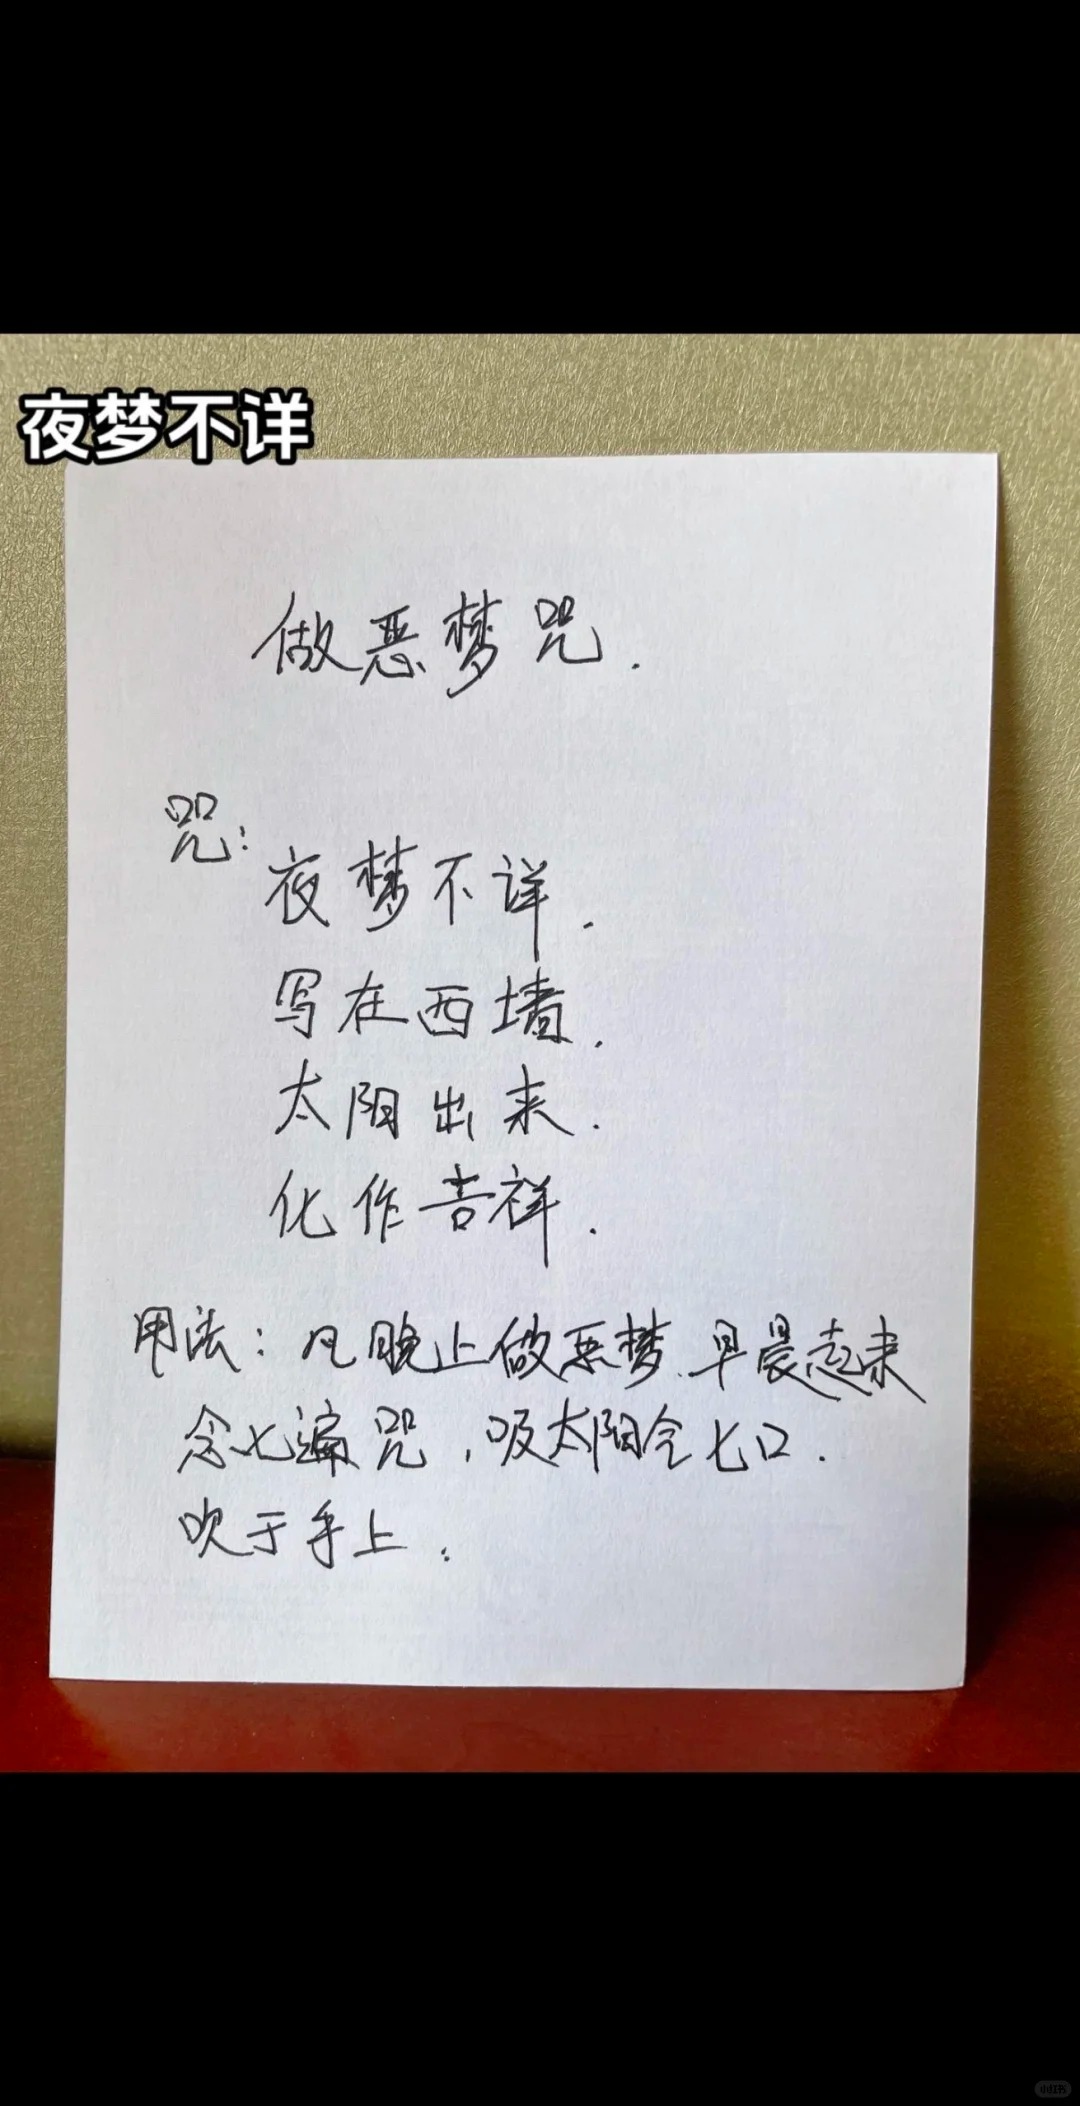 夜梦不详
做恶梦咒.
咒:
夜梦不详.
写在西墙.
太阳出来.
化作吉祥.
用法:凡晚上做恶梦.早晨起来
念七遍咒,吸太阳气七口.
吹于手上.